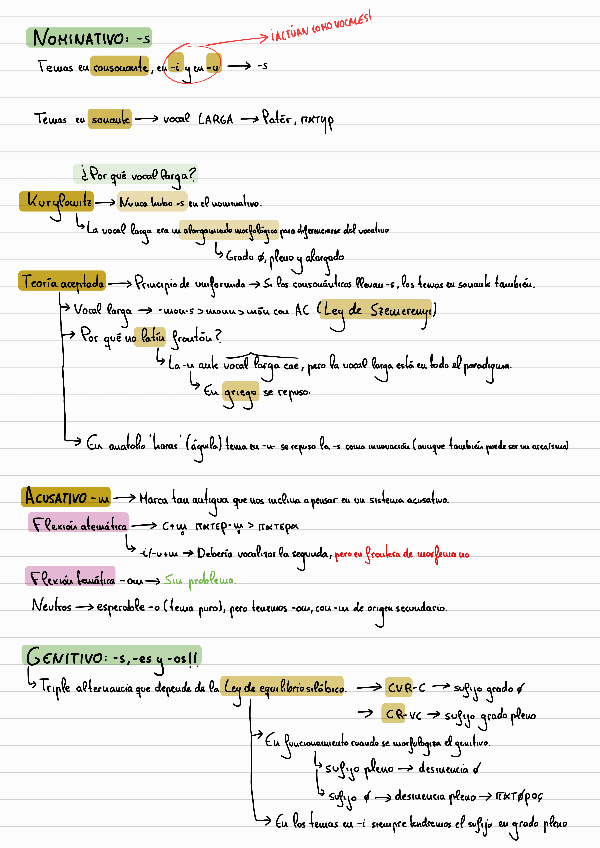 NOMINATIVO: -s
¡ACTÚAN COMO VOCALES!
Temas en consonante, en -i y en -u → -s
Temas en sonante → vocal LARGA → Patēr, πατηρ
¿Por qué vocal larga?
Kurylowitz → Nunca hubo -s en el nominativo.
La vocal larga era un alargamiento morfológico para diferenciarse del vocativo
Grado ∅, pleno y alargado
Teoría aceptada → Principio de uniformidad → Si los consonánticos llevan -s, los temas en sonante también.
Vocal larga → -mon-s > monn > mōn con AC (Ley de Szemerenyi)
Por qué no latín frontōn?
La -n ante vocal larga cae, pero la vocal larga está en todo el paradigma.
En griego se repuso.
En anatolio 'haras' (águila) tema en -n- se repuso la -s como innovación (aunque también puede ser un arcaísmo)
ACUSATIVO -m → Marca tan antigua que nos inclina a pensar en un sistema acusativo.
Flexión atemática → C+m̥ πατερ-m̥ > πατερα
-i/-u+m → Debería vocalizar la segunda, pero en frontera de morfema no
Flexión temática -om → Sin problema.
Neutros → esperable -o (tema puro), pero tenemos -om, con -m de origen secundario.
GENITIVO: -s, -es y -os!!
Triple alternancia que depende de la Ley de equilibrio silábico. → CVR-C → sufijo grado ∅
→ CR-VC → sufijo grado pleno
En funcionamiento cuando se morfologiza el genitivo.
sufijo pleno → desinencia ∅
sufijo ∅ → desinencia pleno → πατ∅ρος
En los temas en -i siempre tendremos el sufijo en grado pleno